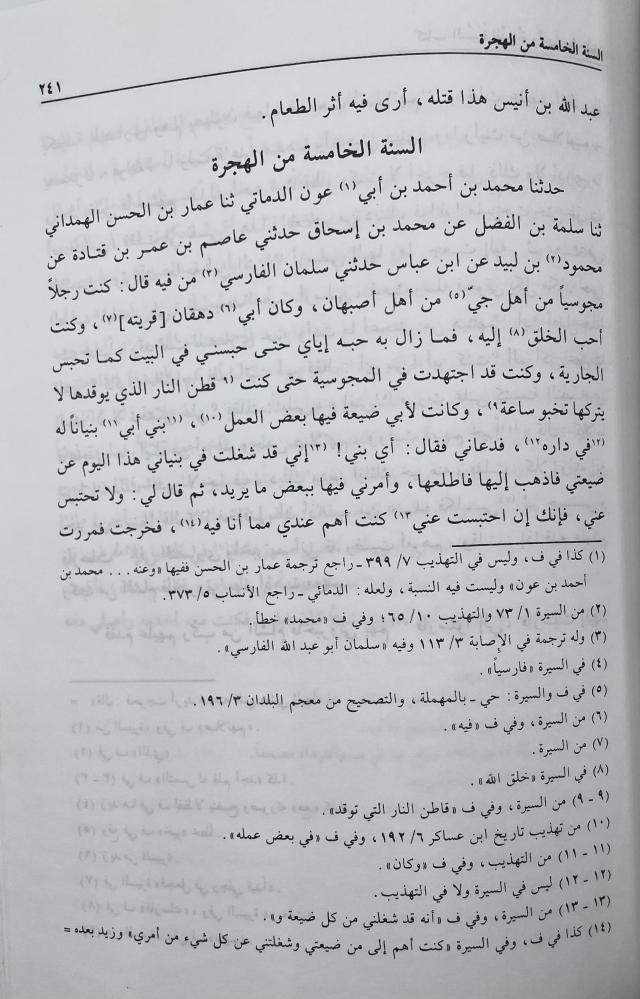 السنة الخامسة من الهجرة
٢٤١
عبد الله بن أنيس هذا قتله، أرى فيه أثر الطعام.
السنة الخامسة من الهجرة
حدثنا محمد بن أحمد بن أبي(١) عون الدماتي ثنا عمار بن الحسن الهمداني
ثنا سلمة بن الفضل عن محمد بن إسحاق حدثني عاصم بن عمر بن قتادة عن
محمود(٢) بن لبيد عن ابن عباس حدثني سلمان الفارسي(٣) من فيه قال: كنت رجلاً
مجوسياً من أهل جيّ(٥) من أهل أصبهان، وكان أبي(٦) دهقان [قريته](٧)، وكنت
أحب الخلق(٨) إليه، فما زال به حبه إياي حتى حبسني في البيت كما تحبس
الجارية، وكنت قد اجتهدت في المجوسية حتى كنت (٩ قطن النار الذي يوقدها لا
يتركها تخبو ساعة٩)، وكانت لأبي ضيعة فيها بعض العمل(١٠)، (١١بني أبي١١) بنياناً له
(١٢في داره١٢)، فدعاني فقال: أي بني! (١٣إني قد شغلت في بنياني هذا اليوم عن
ضيعتي فاذهب إليها فاطلعها، وأمرني فيها ببعض ما يريد، ثم قال لي: ولا تحتبس
عني، فإنك إن احتبست عني١٣) كنت أهم عندي مما أنا فيه(١٤)، فخرجت فمررت
(١) كذا في ف، وليس في التهذيب ٧/ ٣٩٩ ـ راجع ترجمة عمار بن الحسن ففيها «وعنه . . . محمد بن
أحمد بن عون» وليست فيه النسبة، ولعله: الدمائي ـ راجع الأنساب ٥/ ٣٧٣.
(٢) من السيرة ١/ ٧٣ والتهذيب ١٠/ ٦٥؛ وفي ف «محمد» خطأ.
(٣) وله ترجمة في الإصابة ٣/ ١١٣ وفيه «سلمان أبو عبد الله الفارسي».
(٤) في السيرة «فارسياً».
(٥) في ف والسيرة: حي ـ بالمهملة، والتصحيح من معجم البلدان ٣/ ١٩٦.
(٦) من السيرة، وفي ف «فيه».
(٧) من السيرة.
(٨) في السيرة «خلق الله».
(٩ - ٩) من السيرة، وفي ف «قاطن النار التي توقد».
(١٠) من تهذيب تاريخ ابن عساكر ٦/ ١٩٢، وفي ف «في بعض عمله».
(١١ - ١١) من التهذيب، وفي ف «وكان».
(١٢ - ١٢) ليس في السيرة ولا في التهذيب.
(١٣ - ١٣) من السيرة، وفي ف «أنه قد شغلني من كل ضيعة و».
(١٤) كذا في ف، وفي السيرة «كنت أهم إلى من ضيعتي وشغلتني عن كل شيء من أمري» وزيد بعده =